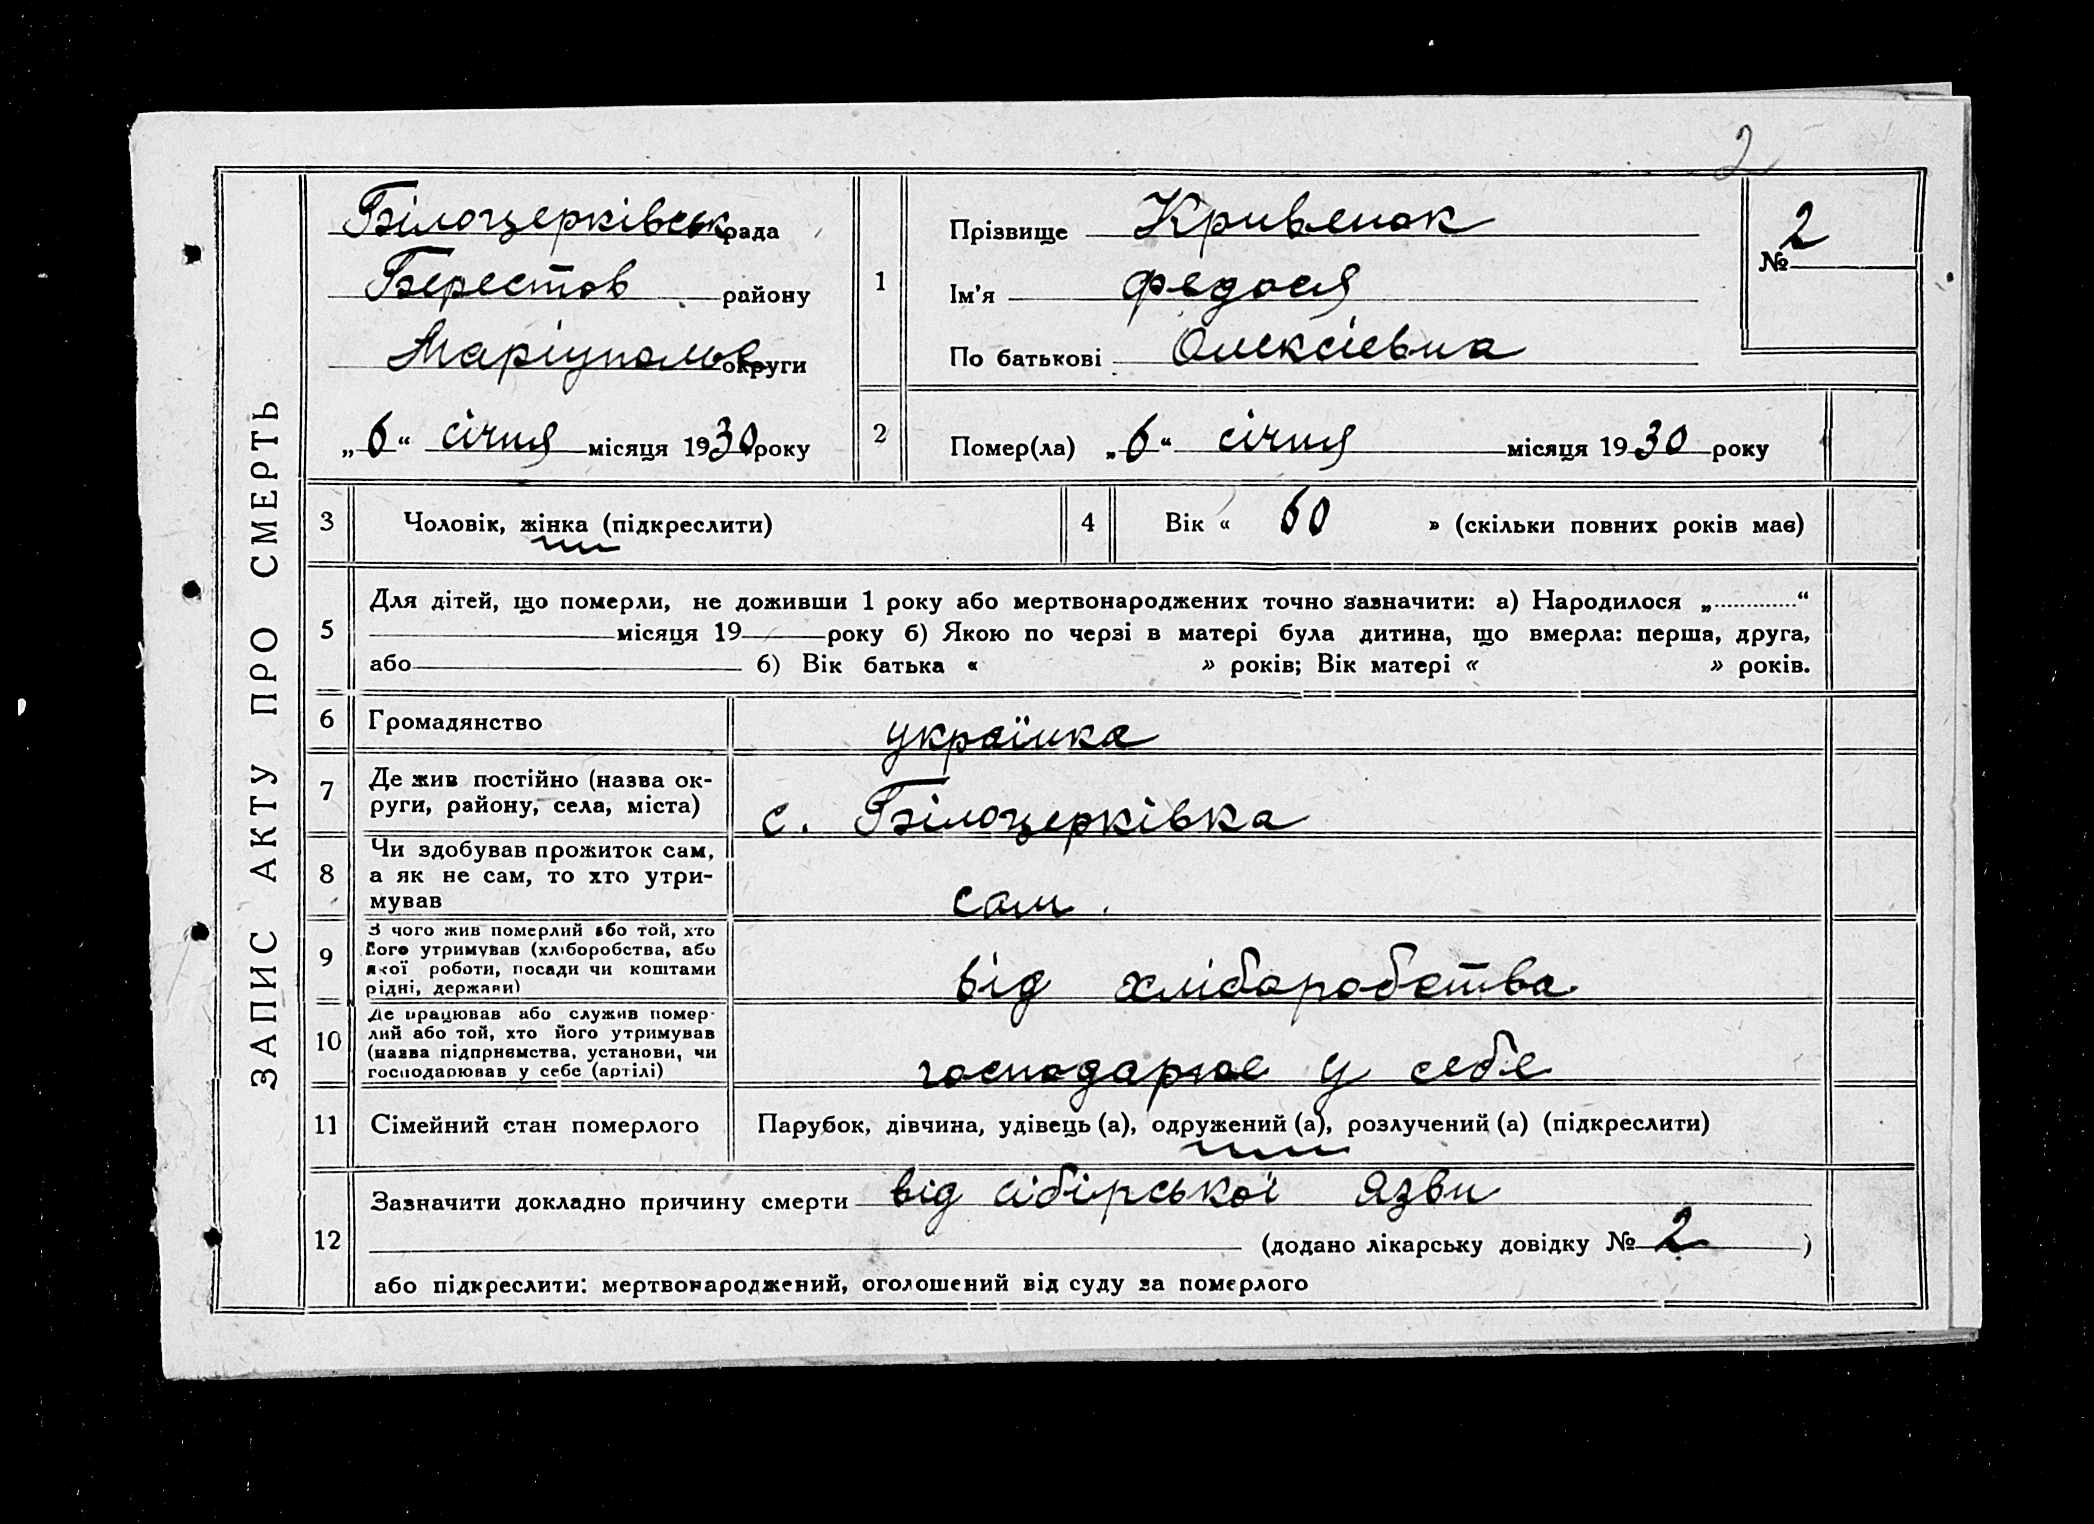 2
ЗАПИС АКТУ ПРО СМЕРТЬ
Білоцерківськ рада
Берестов району
Маріупольс округи
„6“ січня місяця 1930 року
1
Прізвище Кривенок
Ім'я Федося
По батькові Олексієвна
№ 2
2
Помер(ла) „6“ січня місяця 1930 року
3
Чоловік, жінка (підкреслити)
4
Вік « 60 » (скільки повних років має)
5
Для дітей, що померли, не доживши 1 року або мертвонароджених точно зазначити: а) Народилося „............“
місяця 19 року б) Якою по черзі в матері була дитина, що вмерла: перша, друга,
або б) Вік батька « » років; Вік матері « » років.
6
Громадянство
українка
7
Де жив постійно (назва ок-
руги, району, села, міста)
с. Білоцерківка
8
Чи здобував прожиток сам,
а як не сам, то хто утри-
мував
сам.
9
З чого жив померлий або той, хто
його утримував (хліборобства, або
якої роботи, посади чи коштами
рідні, держави)
від хліборобства
10
Де працював або служив помер-
лий або той, хто його утримував
(назва підприємства, установи, чи
господарював у себе (артілі)
господарює у себе
11
Сімейний стан померлого
Парубок, дівчина, удівець (а), одружений (а), розлучений (а) (підкреслити)
12
Зазначити докладно причину смерти від сібірської язви
(додано лікарську довідку № 2 )
або підкреслити: мертвонароджений, оголошений від суду за померлого